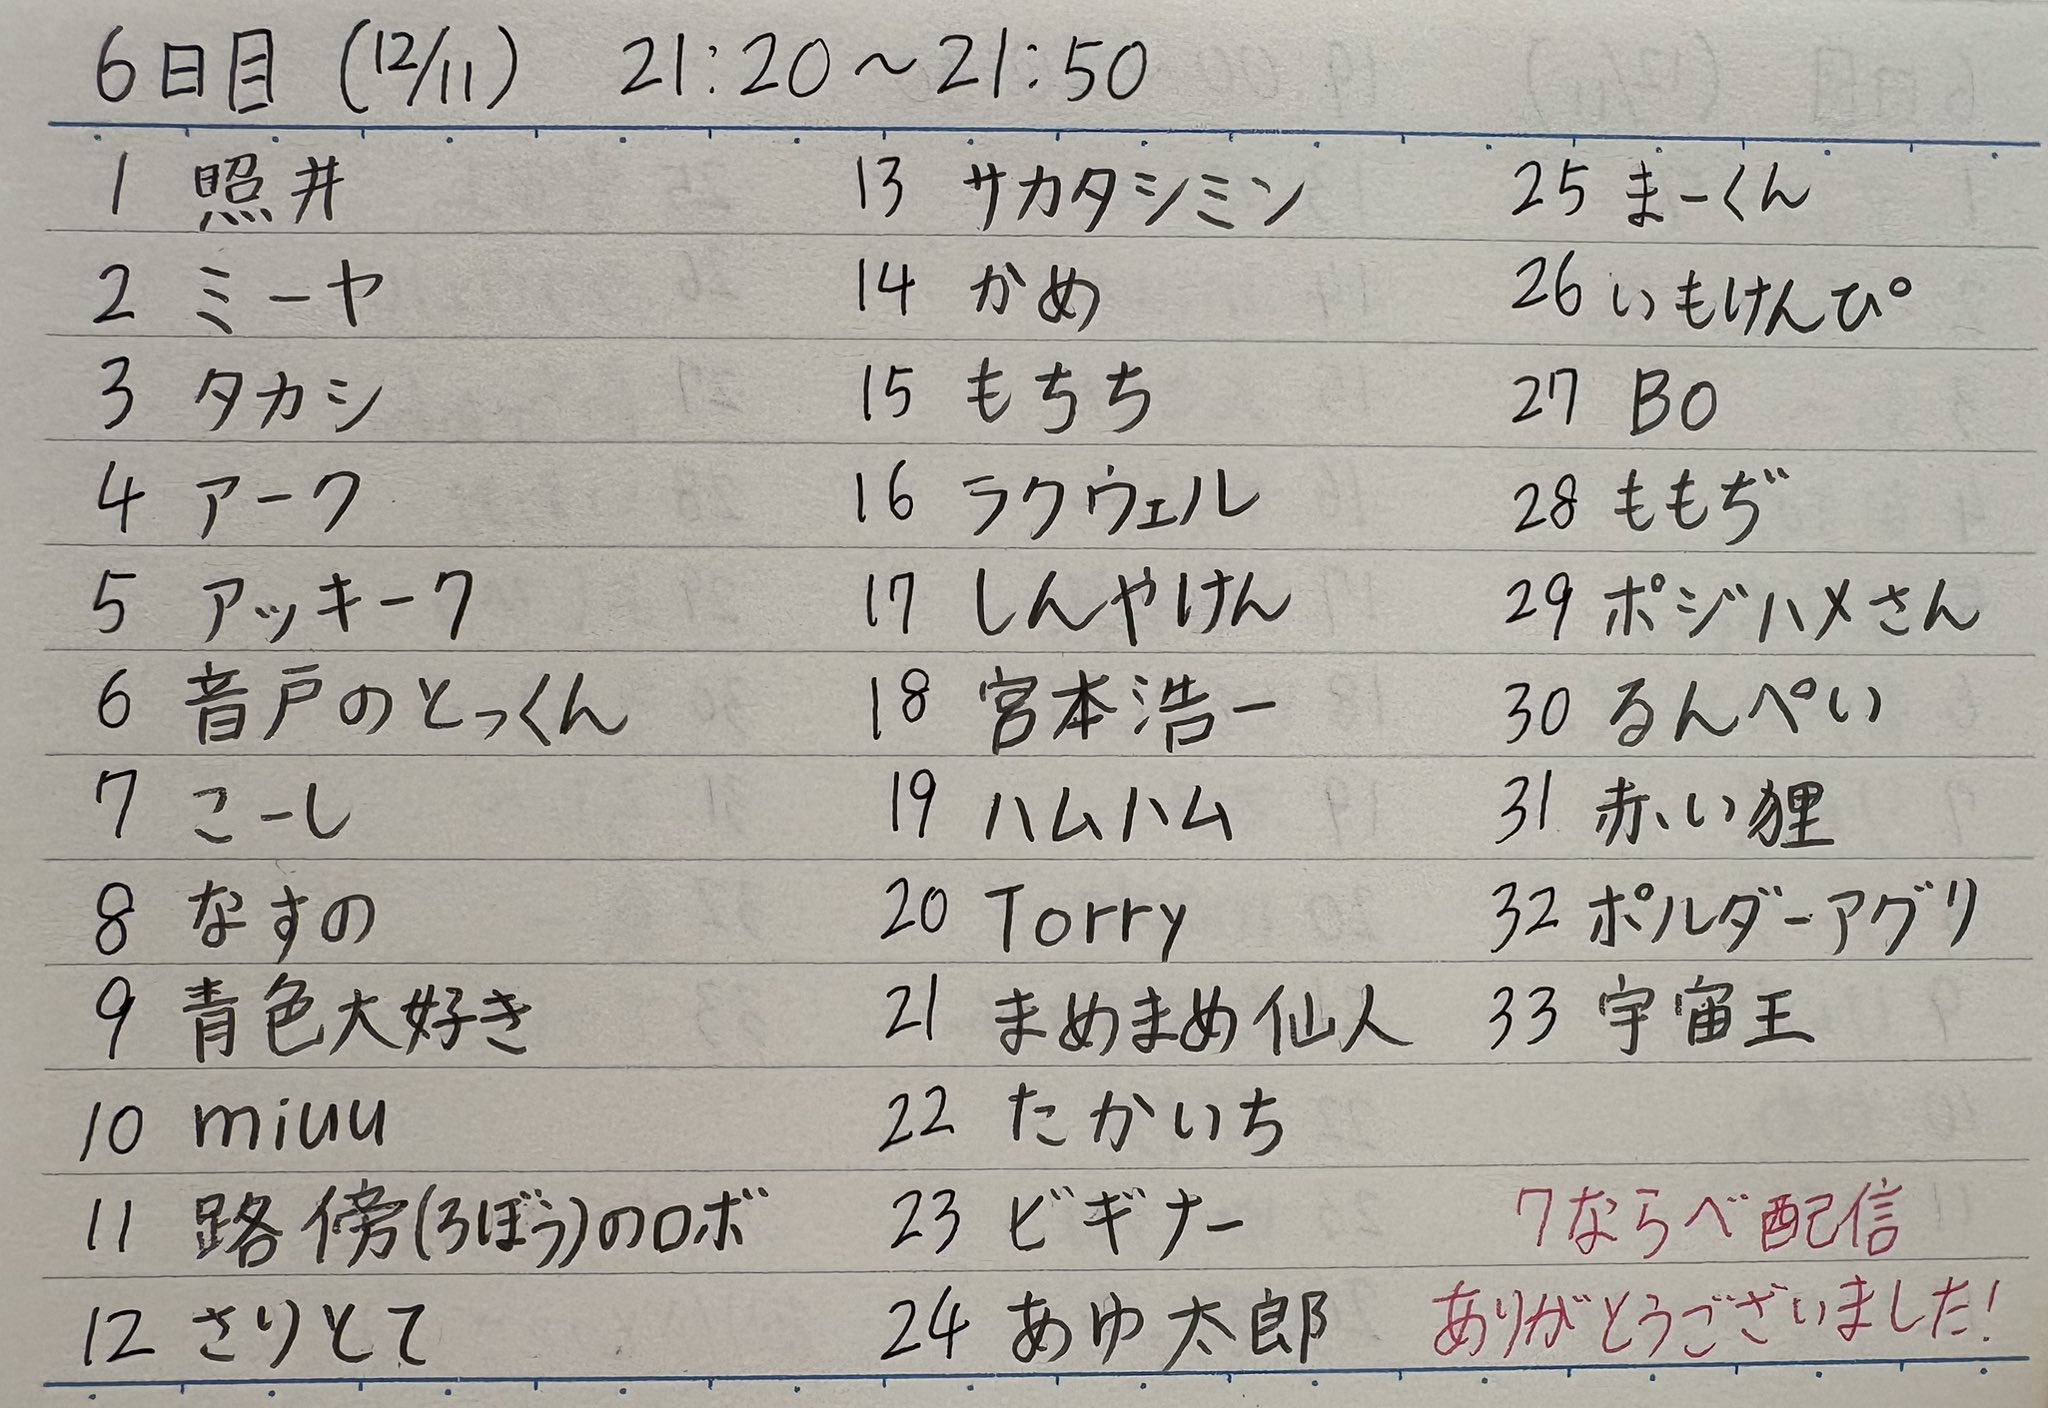 6日目 (12/11) 21:20～21:50
1 照井
2 ミーヤ
3 タカシ
4 アーク
5 アッキーク
6 音戸のとっくん
7 こーし
8 なすの
9 青色大好き
10 miuu
11 路傍(ろぼう)のロボ
12 さりとて
13 サカタシミン
14 かめ
15 もちち
16 ラクウェル
17 しんやけん
18 宮本浩一
19 ハムハム
20 Torry
21 まめまめ仙人
22 たかいち
23 ビギナー
24 あゆ太郎
25 まーくん
26 いもけんぴ
27 BO
28 ももぢ
29 ポジハメさん
30 るんぺい
31 赤い狸
32 ポルダーアグリ
33 宇宙王
7ならべ配信
ありがとうございました!